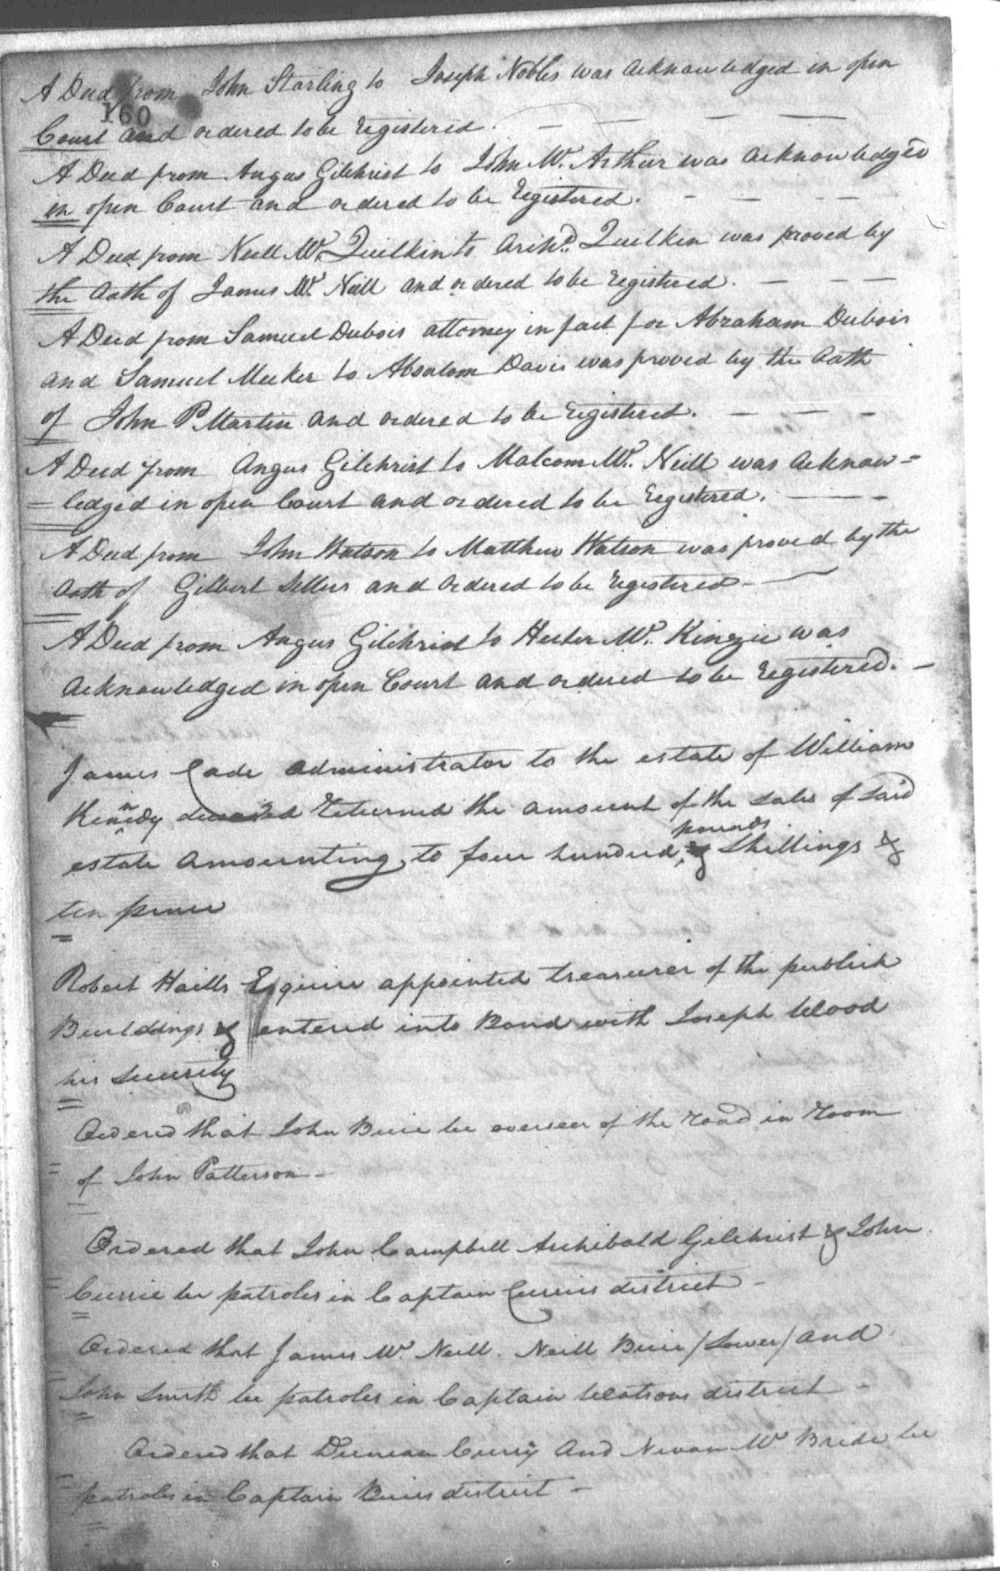 A Deed from John Starling to Joseph Nobles was acknowledged in open
160
Court and ordered to be registered.
A Deed from Angus Gilchrist to John Mc. Arthur was acknowledged
in open Court and ordered to be registered.
A Deed from Neill Mc. Quilkin to Archd. Quilkin was proved by
the Oath of James Mc. Neill and ordered to be registered.
A Deed from Samuel Dubois attorney in fact for Abraham Dubois
and Samuel Meeker to Absalom Davis was proved by the Oath
of John P. Martin and ordered to be registered.
A Deed from Angus Gilchrist to Malcom Mc. Neill was acknow=
=ledged in open Court and ordered to be registered.
A Deed from John Watson to Matthew Watson was proved by the
Oath of Gilbert Sellers and Ordered to be registered
A Deed from Angus Gilchrist to Hector Mc. Kinzie was
acknowledged in open Court and ordered to be registered.
James Cade administrator to the estate of William
Kennedy deceased returned the amount of the sales of said
estate amounting to four hundred pounds & Shillings &
ten pence
Robert Haills Esquire appointed treasurer of the publick
Buildings & entered into Bond with Joseph Wood
his security
Ordered that John Buie be overseer of the road in room
of John Patterson
Ordered that John Campbell Archibald Gilchrist & John
Currie be patroles in Captain Curries district
Ordered that James Mc. Neill. Neill Buie /Lower/ and
John Smith be patroles in Captain Watsons district
Ordered that Duncan Curry and Nevan Mc Bride be
patroles in Captain Buies district